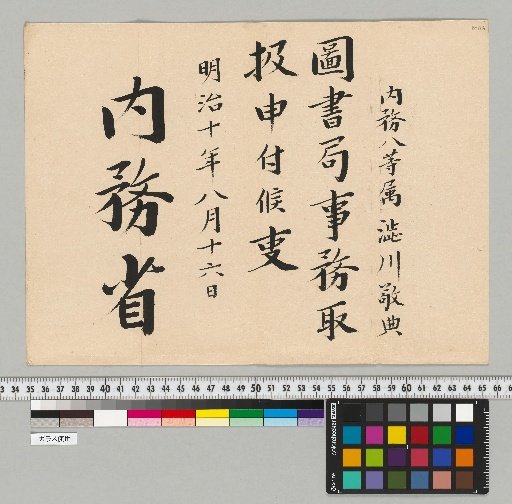 内務八等属澁川敬典
圖書局事務取
扱申付候叓
明治十年八月十六日
内務省
33 34 35 36 37 38 39 40 41 42 43 44 45 46 47 48 49 50 51 52 53 54 55 56 57 58 59 60 61 62 63 64 65 66
ガラス使用